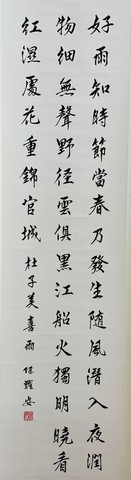 好雨知時節當春乃發生随風潛入夜潤
物細無聲野径雲俱黒江船火獨明曉看
紅濕處花重錦官城 杜子美喜雨